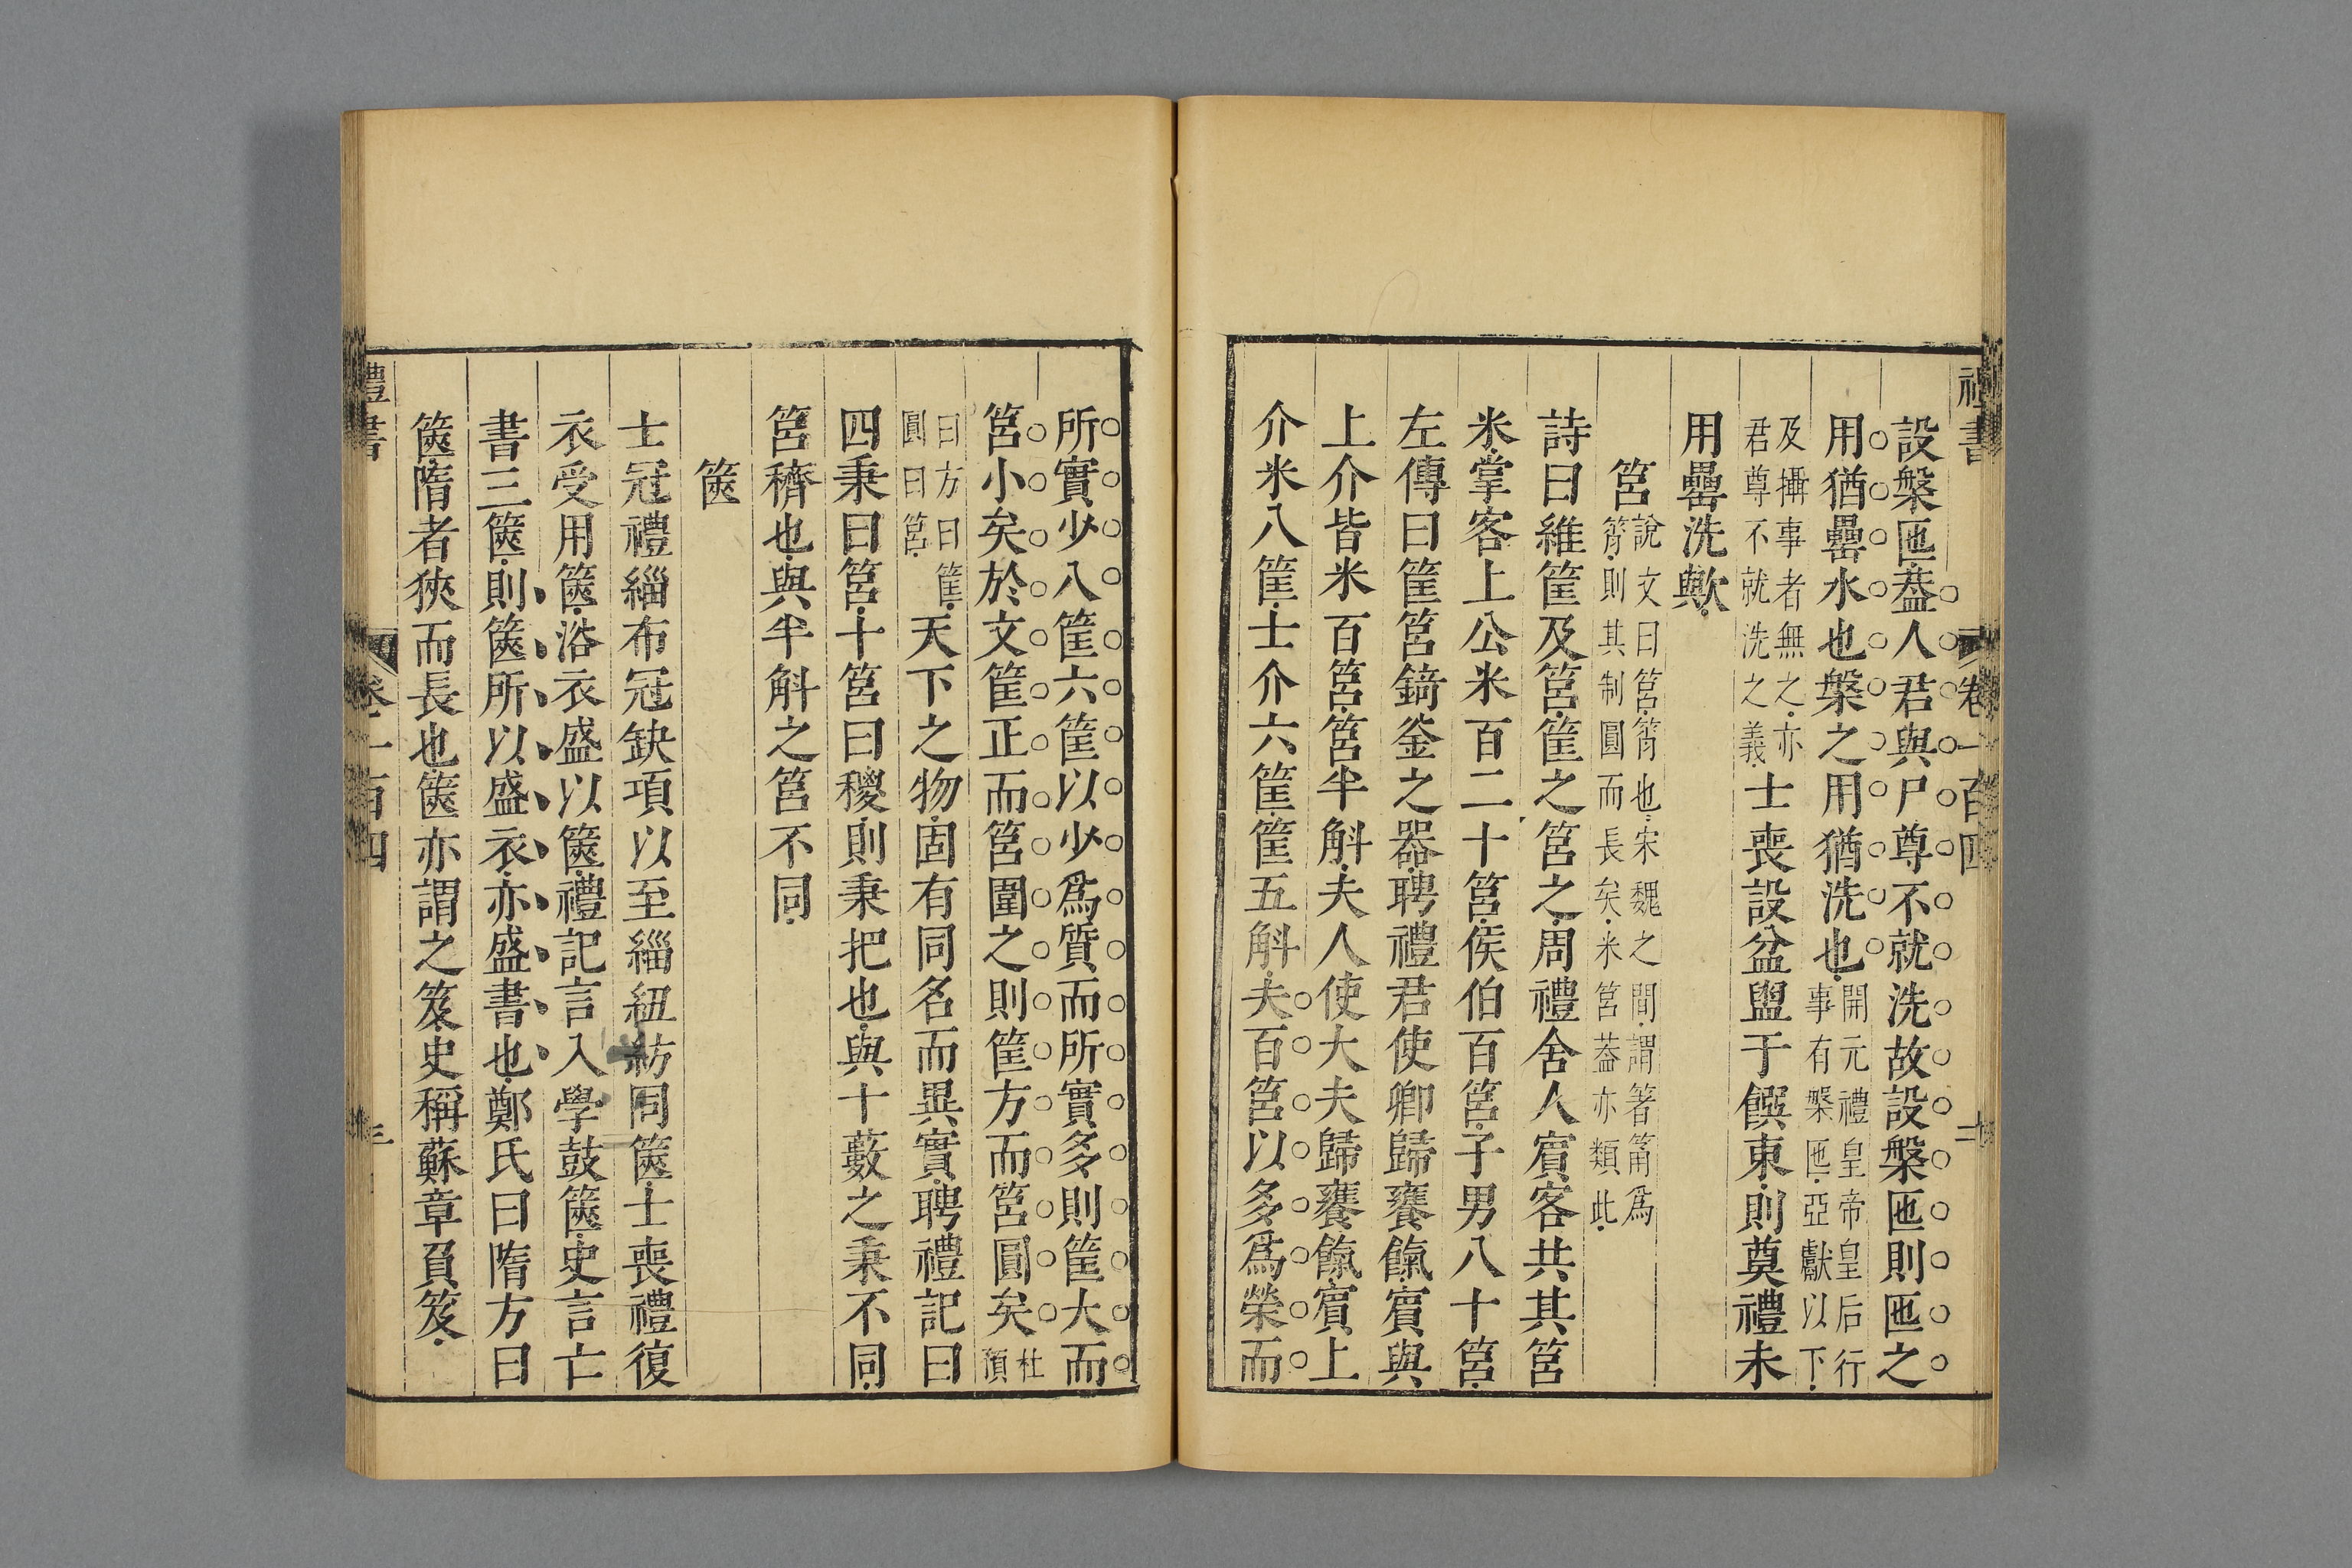 禮書 卷一百四 二
設槃匜葢人君與尸尊不就洗故設槃匜則匜之
用猶罍水也槃之用猶洗也開元禮皇帝皇后行事有槃匜亞獻以下
及攝事者無之亦君尊不就洗之義士喪設盆盥于饌東則奠禮未
用罍洗歟
筥說文曰筥筲也宋魏之間謂箸筩為筲則其制圓而長矣米筥葢亦類此
詩曰維筐及筥筐之筥之周禮舍人賔客共其筥
米掌客上公米百二十筥侯伯百筥子男八十筥
左傳曰筐筥錡釜之器聘禮君使卿歸饔餼賔與
上介皆米百筥筥半斛夫人使大夫歸饔餼賔上
介米八筐士介六筐筐五斛夫百筥以多爲榮而
所實少八筐六筐以少爲質而所實多則筐大而
筥小矣於文筐正而筥圍之則筐方而筥圓矣杜預
曰方曰筐圓曰筥天下之物固有同名而異實聘禮記曰
四秉曰筥十筥曰稯則秉把也與十藪之秉不同
筥穧也與半斛之筥不同
篋
士冠禮緇布冠缺項以至緇紐紡同篋士喪禮復
衣受用篋浴衣盛以篋禮記言入學鼓篋史言亡
書三篋則篋所以盛衣亦盛書也鄭氏曰隋方曰
篋隋者狹而長也篋亦謂之笈史稱蘇章負笈
禮書 卷一百四 三